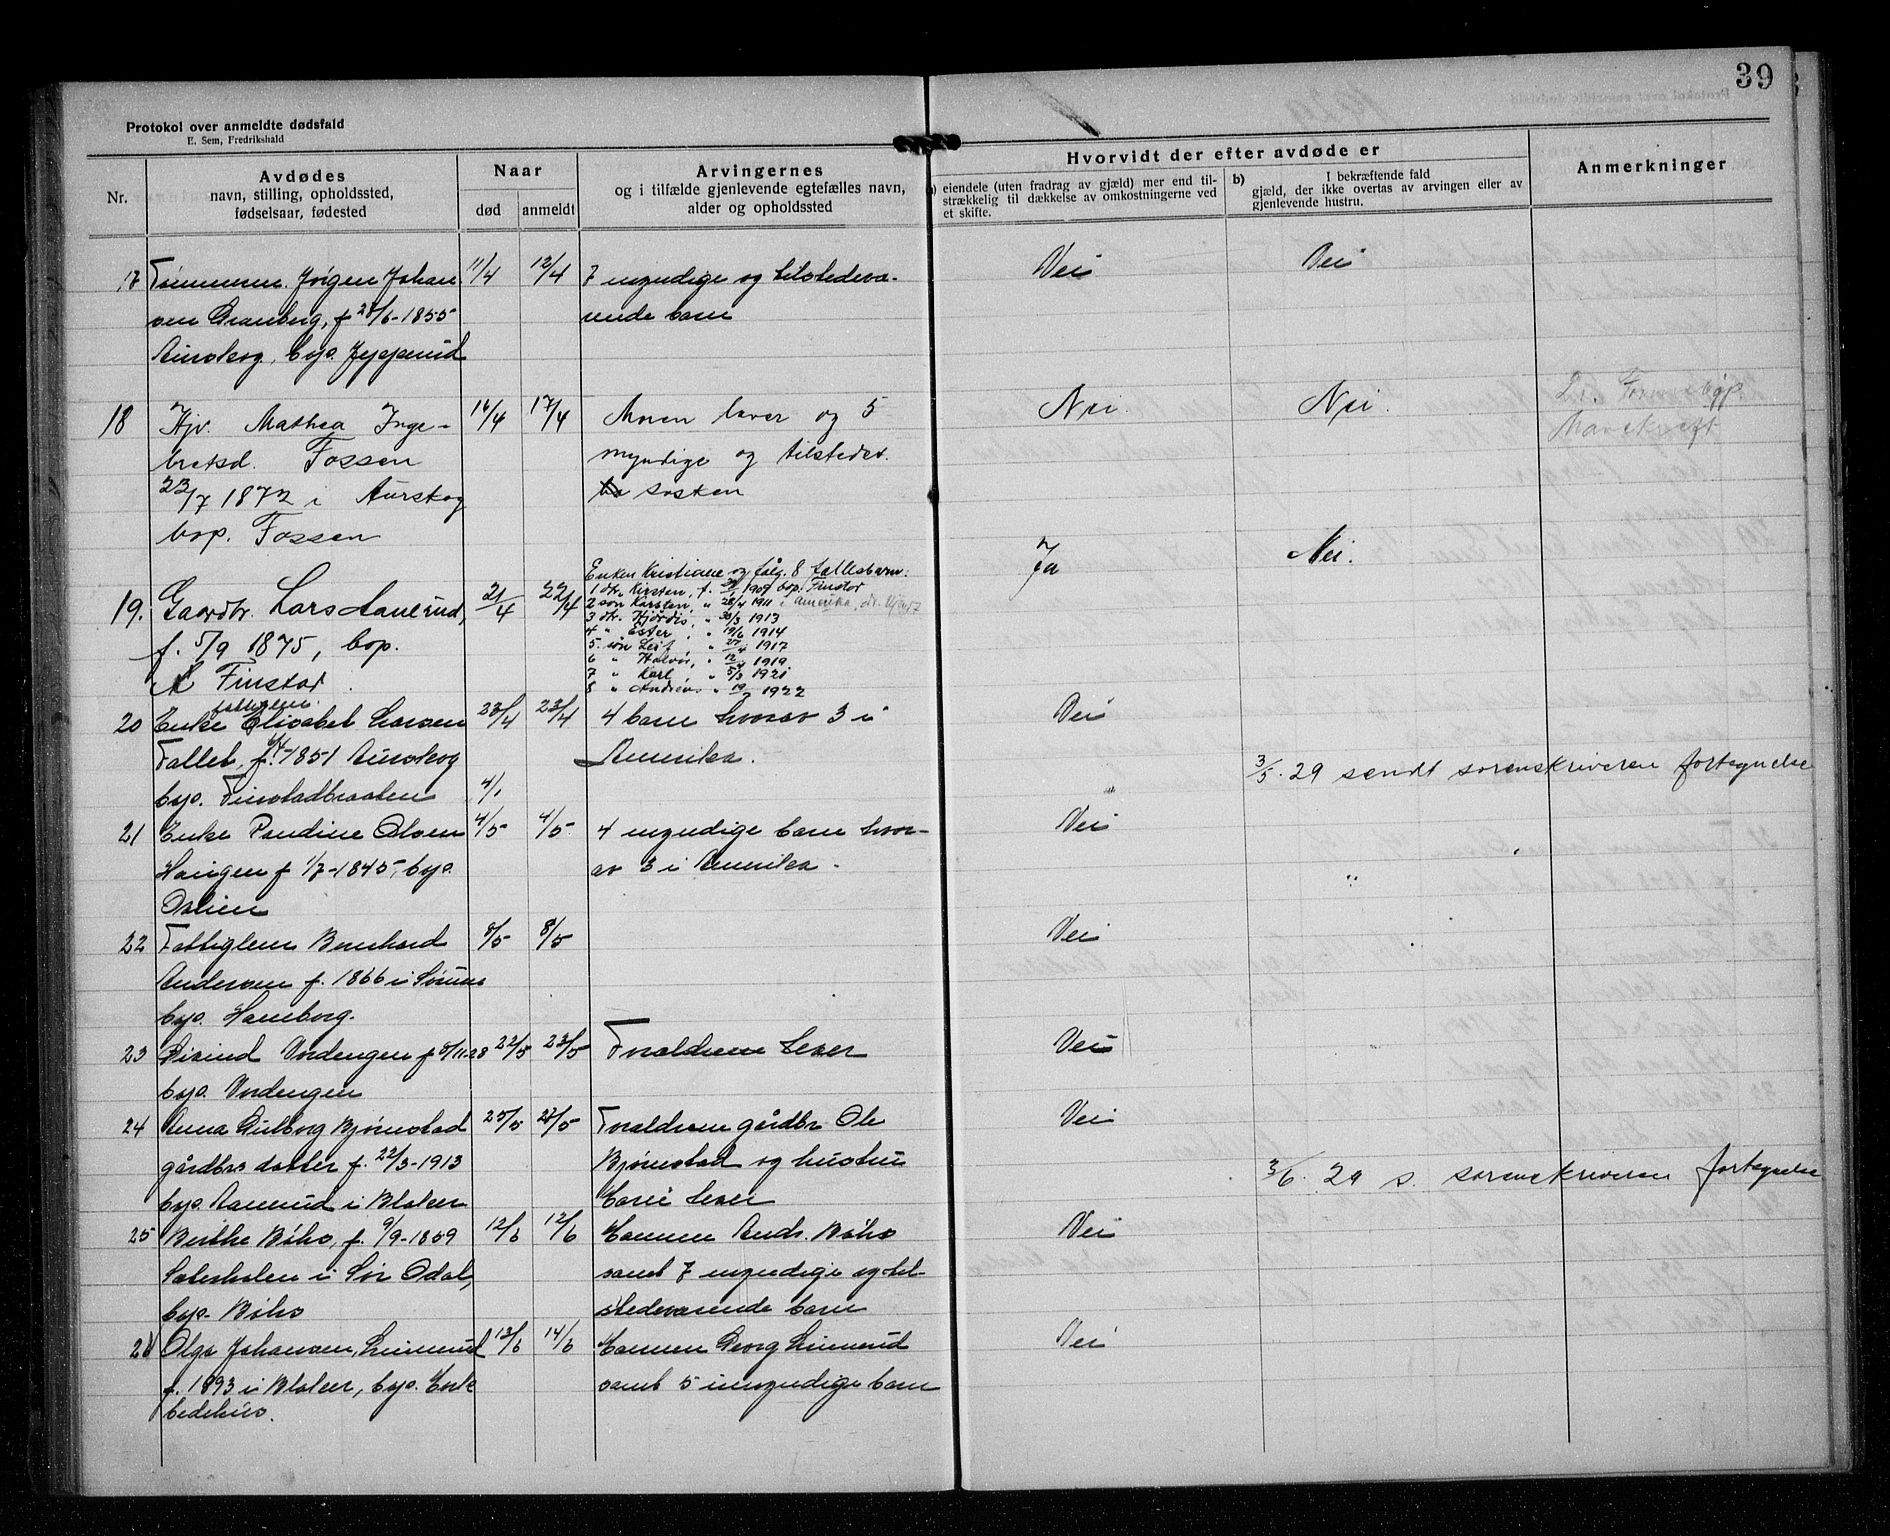 39
Protokol over anmeldte dødsfald
E. Sem, Fredrikshald
Nr.
Avdødes
navn, stilling, opholdssted,
fødselsaar, fødested
Naar
død
anmeldt
Arvingernes
og i tilfælde gjenlevende egtefælles navn,
alder og opholdssted
Hvorvidt der efter avdøde er
eiendele (uten fradrag av gjæld) mer end til-
strækkelig til dækkelse av omkostningerne ved
et skifte.
b) I bekræftende fald
gjæld, der ikke overtas av arvingen eller av
gjenlevende hustru.
Anmerkninger
17 Tømmerm. Jörgen Johan 11/4 12/4 7 myndige og tilstedevæ- Nei Nei
sen Granberg, f 28/6-1855 rende barn
Aurskog, bop. Jpperud
18 Hjv. Mathea Inge- 16/4 17/4 Moren lever og 5 Nei. Nei.
bretsd. Fossen myndige og tilstedev.
22/7 1872 i Aurskog søsken
bop. Fossen
Enken Kristiane og følg. 8 fællesbarn: Ja Nei.
1 dtr. Kirsten, f. 1909 bop. Finstad
19. Gaardbr. Lars Aanerud, 21/4 22/4 2 søn Karsten, " 28/4 1911 i Amerika,
3 dtr. Hjørdis, " 30/3 1913
f. 5/9 1875, bop. 4 " Ester, " 19/6 1914
5. søn Leif, " 27/4 1917
6 " Halvor, " 12/4 1919
Finstad 7 " Karl, " 5/3 1921
8 " Andreas " 1922
fattiglem
20 Enke Elisabet Larsen 23/4 23/4 4 barn hvorav 3 i Nei
Fallet, f. 6/4-1851 Aurskog Amerika.
3/5. 29 sendt sorenskriveren fortegnelse
bop. Finstadbraaten 4/1
21 Enke Paudine Olsen 4/5 4/5 4 myndige barn hvor- Nei
Haugen f 1/7-1845, bop. av 3 i Amerika.
Oslien
22 Fattiglem Bernhard 8/5 8/5 Nei
Andersen f. 1866 i Sørum
bop. Haneborg.
23 Eivind Vordengen f 5/11-28 22/5 23/5 Forældrene lever Nei
bop. Vordengen
24 Anna Gulborg Bjørnstad 25/5 28/5 Forældrene gårdbr Ole Nei
gårdbrs datter f. 22/3-1913 Bjørnstad og hustru
bop. Aanerud i Blaker Kari lever
3/6. 29 s. sorenskriveren fortegnelse
25 Berthe Böhs, f. 9/9-1859 12/6 12/6 Mannen Ands. Böhs Nei
i Sør Odal, samt 7 myndige og til-
bop. Böhs stedeværende barn
26 Olga Johansen, Linnerud 13/6 14/6 Mannen Georg Linnerud Nei
f. 1893 i Blaker, bop. Enk samt 5 umyndige barn
bedehus.